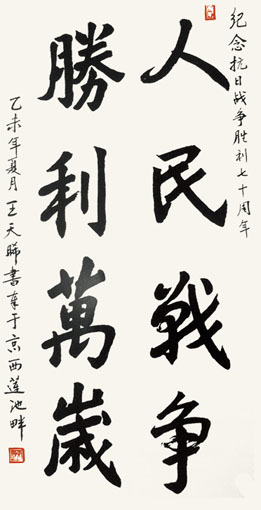 纪念抗日战争胜利七十周年
人民戰争
勝利萬歲
乙未年夏月王天睇書奉于京西莲池畔